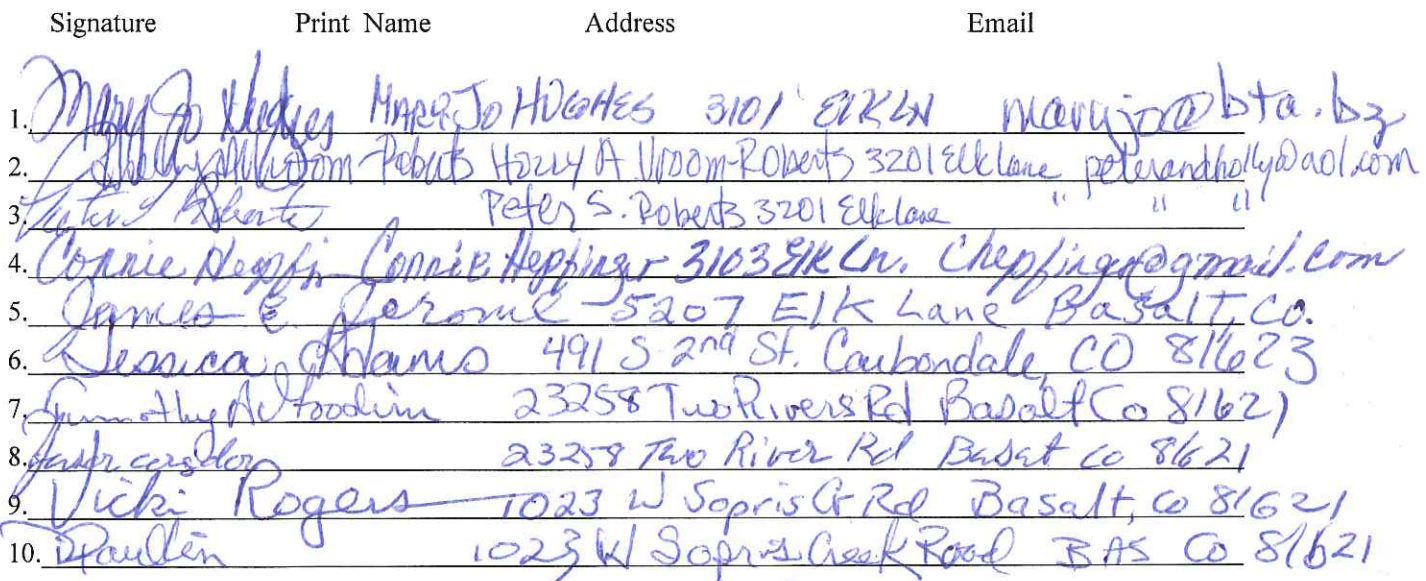 Signature Print Name Address Email
1. Mary Jo Hughes MARY JO HUGHES 3101 ELK LN maryjo@bta.bz
2. Vroom-Roberts Holly A Vroom-Roberts 3201 Elk Lane peterandholly@aol.com
3. Peter S. Roberts 3201 Elk Lane " " "
4. Connie Connie Hepfinger 3103 Elk Ln. chepfinger@gmail.com
5. James E. Jerome 5207 Elk Lane Basalt, Co.
6. Jessica Adams 491 S 2nd St. Carbondale, CO 81623
7. 23258 Two Rivers Rd Basalt Co 81621
8. 23258 Two River Rd Basat co 81621
9. Vicki Rogers 1023 W Sopris Cr Rd Basalt, Co 81621
10. 1023 W Sopris Creek Road BAS CO 81621